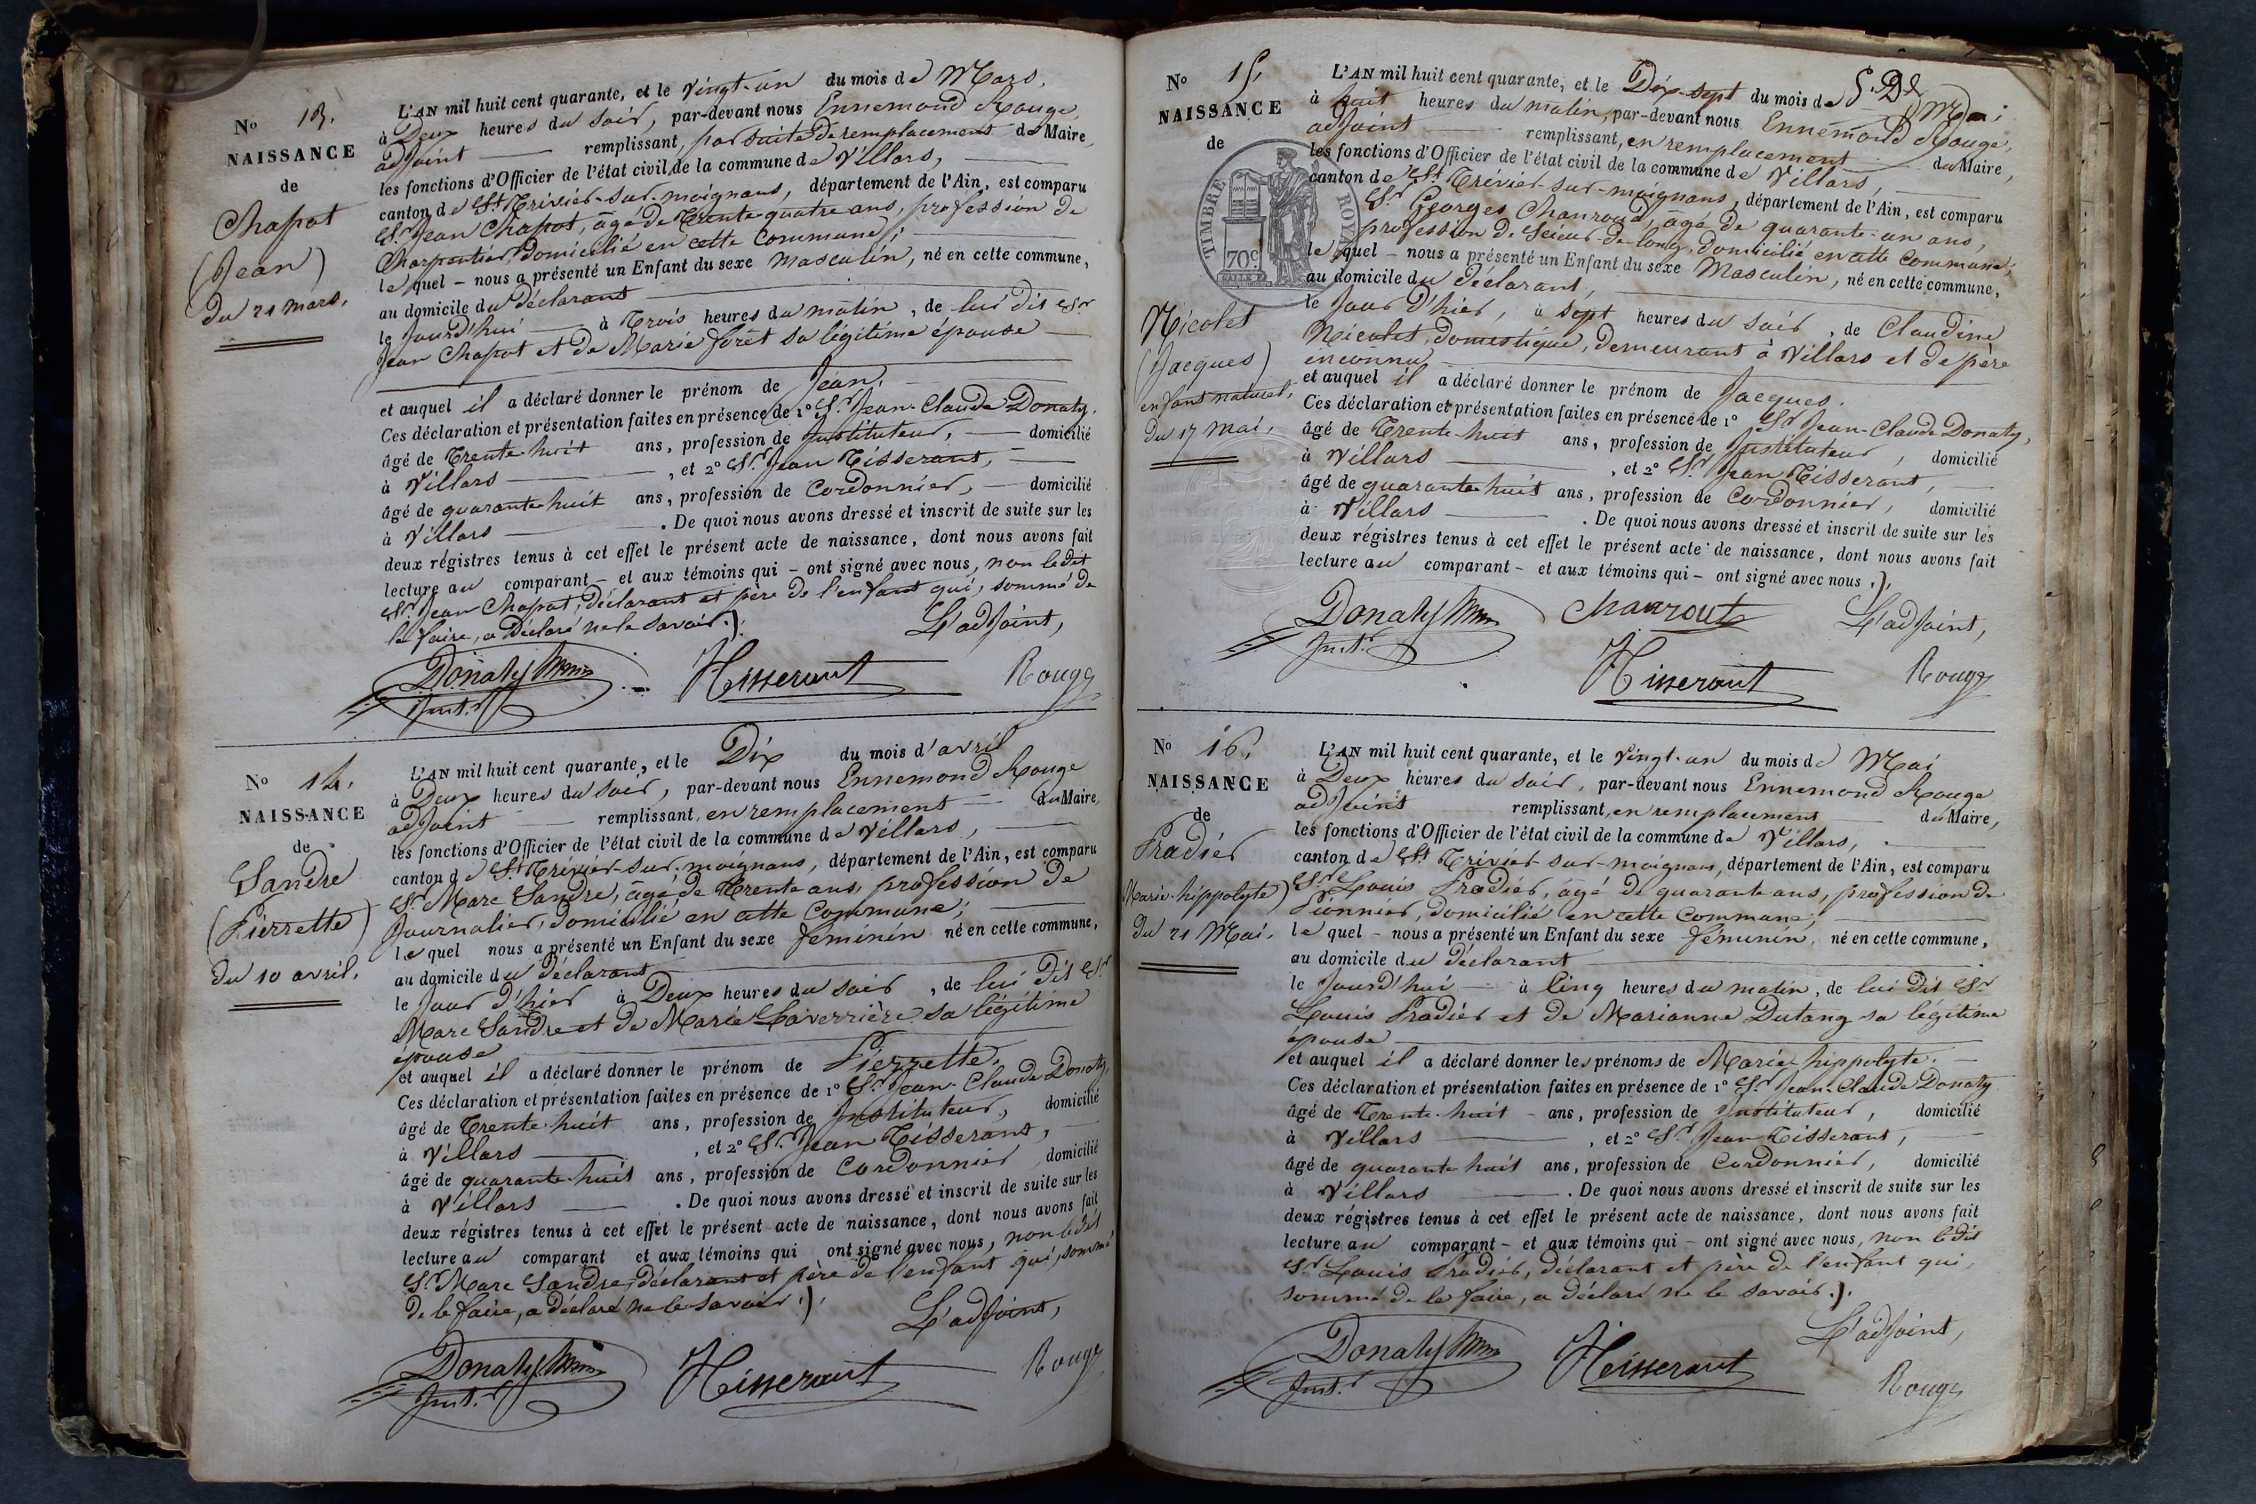 No 13.
NAISSANCE
de
Chapot
(Jean)
du 21 mars.
L'AN mil huit cent quarante, et le vingt-un du mois de Mars.
à Deux heures du soir, par-devant nous Ennemond Rouge,
adjoint remplissant, par suite de remplacement du Maire,
les fonctions d'Officier de l'état civil de la commune de Villars,
canton de St Trivier-sur-moignans, département de l'Ain, est comparu
Sr Jean Chapot, âgé de Trente quatre ans, profession de
Charpentier, domicilié en cette Commune;
lequel - nous a présenté un Enfant du sexe masculin, né en cette commune,
au domicile du déclarant
le Jourd'hui à Trois heures du matin, de lui dit Sr
Jean Chapot et de Marie forêt sa légitime épouse
et auquel il a déclaré donner le prénom de Jean.
Ces déclaration et présentation faites en présence de 1° Sr Jean-Claude Donaty,
âgé de Trente-huit ans, profession de Instituteur, domicilié
à Villars, et 2° Sr Jean Tisserant,
âgé de quarante-huit ans, profession de Cordonnier, domicilié
à Villars. De quoi nous avons dressé et inscrit de suite sur les
deux régistres tenus à cet effet le présent acte de naissance, dont nous avons fait
lecture au comparant - et aux témoins qui - ont signé avec nous, non ledit
Sr Jean Chapot, déclarant et père de l'enfant qui, sommé de
le faire, a déclaré ne le savoir.).
L'adjoint,
Donaty
Inst.r
Tisserant
Rouge
No 14.
NAISSANCE
de
Sandre
(Pierrette)
du 10 avril.
L'AN mil huit cent quarante, et le Dix du mois d'avril
à Deux heures du soir, par-devant nous Ennemond Rouge
adjoint remplissant, en remplacement du Maire,
les fonctions d'Officier de l'état civil de la commune de Villars,
canton de St Trivier-sur-moignans, département de l'Ain, est comparu
Sr Marc Sandre, âgé de Trente ans, profession de
Journalier, domicilié en cette Commune;
lequel nous a présenté un Enfant du sexe féminin né en cette commune,
au domicile du déclarant
le Jour d'hier à Deux heures du soir, de lui dit Sr
Marc Sandre et de Marie Laverrière sa légitime
épouse
et auquel il a déclaré donner le prénom de Pierrette.
Ces déclaration et présentation faites en présence de 1° Sr Jean-Claude Donaty,
âgé de Trente-huit ans, profession de Instituteur, domicilié
à Villars, et 2° Sr Jean Tisserant,
âgé de quarante-huit ans, profession de Cordonnier domicilié
à Villars. De quoi nous avons dressé et inscrit de suite sur les
deux régistres tenus à cet effet le présent acte de naissance, dont nous avons fait
lecture au comparant et aux témoins qui ont signé avec nous, non ledit
Sr Marc Sandre, déclarant et père de l'enfant qui, sommé
de le faire, a déclaré ne le savoir.).
L'adjoint,
Donaty
Inst.r
Tisserant
Rouge
No 15.
NAISSANCE
de
TIMBRE ROYAL
70c
Nicolet
(Jacques)
enfant naturel,
du 17 mai.
L'AN mil huit cent quarante, et le Dix-sept du mois de Mai
à huit heures du matin, par-devant nous Ennemond Rouge,
adjoint remplissant, en remplacement du Maire,
les fonctions d'Officier de l'état civil de la commune de Villars,
canton de St Trivier-sur-moignans, département de l'Ain, est comparu
Sr Georges Chanroud, âgé de quarante-un ans,
profession de Scieur-de-long, domicilié en cette Commune;
lequel - nous a présenté un Enfant du sexe Masculin, né en cette commune,
au domicile du déclarant,
le Jour d'hier, à sept heures du soir, de Claudine
Nicolet, domestique, demeurant à Villars et de père
inconnu
et auquel il a déclaré donner le prénom de Jacques.
Ces déclaration et présentation faites en présence de 1° Sr Jean-Claude Donaty,
âgé de Trente-huit ans, profession de Instituteur, domicilié
à Villars, et 2° Sr Jean Tisserant,
âgé de quarante-huit ans, profession de Cordonnier, domicilié
à Villars. De quoi nous avons dressé et inscrit de suite sur les
deux régistres tenus à cet effet le présent acte de naissance, dont nous avons fait
lecture au comparant - et aux témoins qui - ont signé avec nous.).
Donaty
Inst.r
Chanrout
L'adjoint,
Tisserant
Rouge
No 16.
NAISSANCE
de
Pradier
(Marie-hippolyte)
du 21 Mai.
L'AN mil huit cent quarante, et le vingt-un du mois de Mai
à Deux heures du soir, par-devant nous Ennemond Rouge
adjoint remplissant, en remplacement du Maire,
les fonctions d'Officier de l'état civil de la commune de Villars,
canton de St Trivier-sur-moignans, département de l'Ain, est comparu
Sr Louis Pradier, âgé de quarante ans, profession de
Pionnier, domicilié en cette Commune;
lequel - nous a présenté un Enfant du sexe féminin, né en cette commune,
au domicile du déclarant
le Jourd'hui à Cinq heures du matin, de lui dit Sr
Louis Pradier et de Marianne Dutang sa légitime
épouse
et auquel il a déclaré donner les prénoms de Marie-hippolyte.
Ces déclaration et présentation faites en présence de 1° Sr Jean-Claude Donaty
âgé de Trente-huit - ans, profession de Instituteur, domicilié
à Villars, et 2° Sr Jean Tisserant,
âgé de quarante-huit ans, profession de Cordonnier, domicilié
à Villars. De quoi nous avons dressé et inscrit de suite sur les
deux régistres tenus à cet effet le présent acte de naissance, dont nous avons fait
lecture au comparant - et aux témoins qui - ont signé avec nous, non ledit
Sr Louis Pradier, déclarant et père de l'enfant qui,
sommé de le faire, a déclaré ne le savoir.).
L'adjoint,
Donaty
Inst.r
Teisserant
Rouge